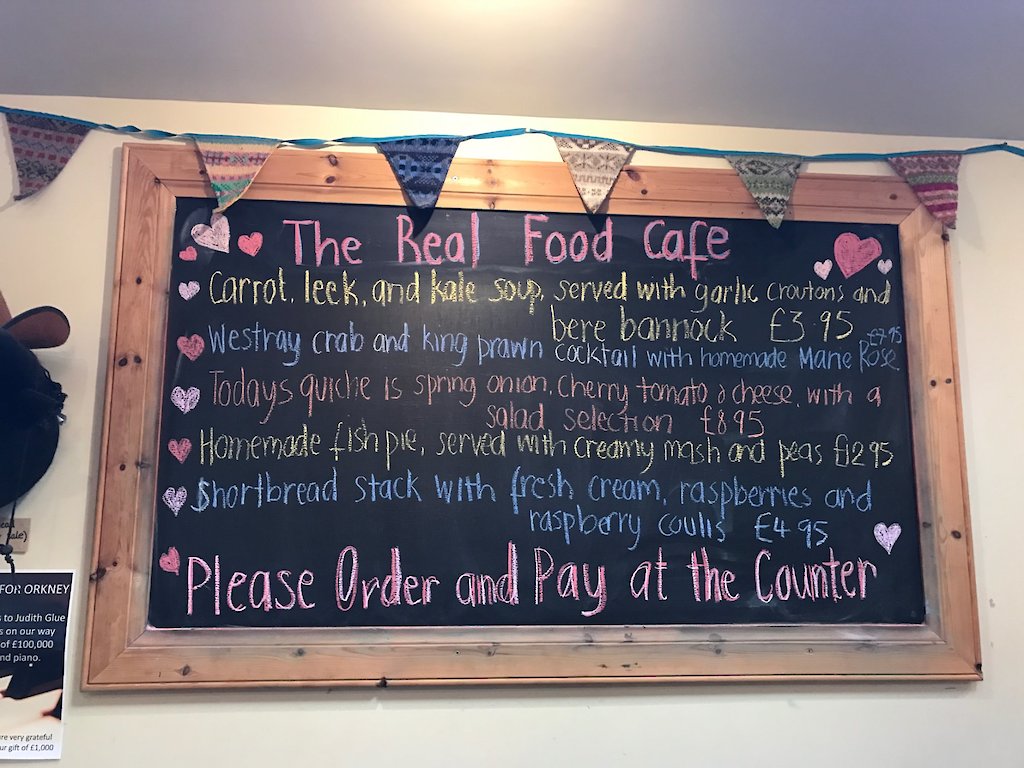 The Real Food Cafe
Carrot, leek, and kale soup, served with garlic croutons and
bere bannock £3.95
Westray crab and king prawn cocktail with homemade Marie Rose £7.95
Todays quiche is spring onion, cherry tomato & cheese, with a
salad selection £8.95
Homemade fish pie, served with creamy mash and peas £12.95
Shortbread stack with fresh cream, raspberries and
raspberry coulis £4.95
Please Order and Pay at the Counter
sale)
FOR ORKNEY
s to Judith Glue
s on our way
of £100,000
nd piano.
re very grateful
ur gift of £1,000